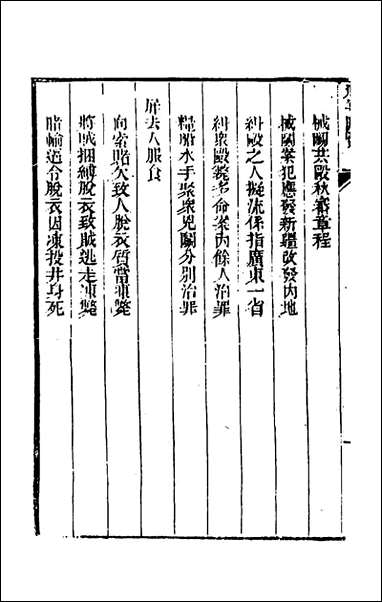 械鬬共毆秋審章程
械鬬案犯應發新疆改發內地
糾毆之人擬流係指廣東一省
糾眾毆斃多命案內餘人治罪
糧船水手聚眾兇鬬分別治罪
屏去人服食
向索賭欠致人脫衣質當凍斃
將賊捆縛脫衣致賊逃走凍斃
賭輸逼令脫衣因凍投井身死